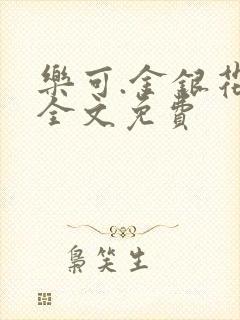 樂可.金銀花
全文免費
梟笑生